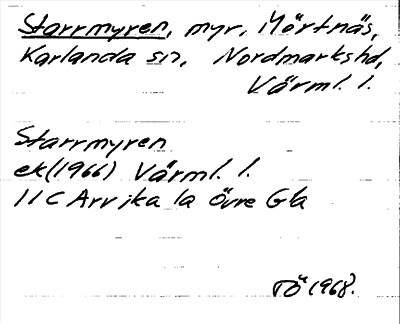 Starrmyren, myr, Mörtnäs,
Karlanda sn, Nordmarks hd,
Värml. l.
Starrmyren
ek(1966) Värml. l.
11C Arvika 1a Övre Gla
TÖ 1968.